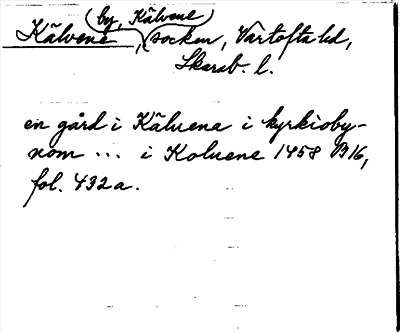 (by, Kälvene)
Kälvene, socken, Vartofta hd,
Skarab. l.
en gård i Käluena i kyrkioby-
nom ... i Koluene 1458 B16,
fol. 432a.